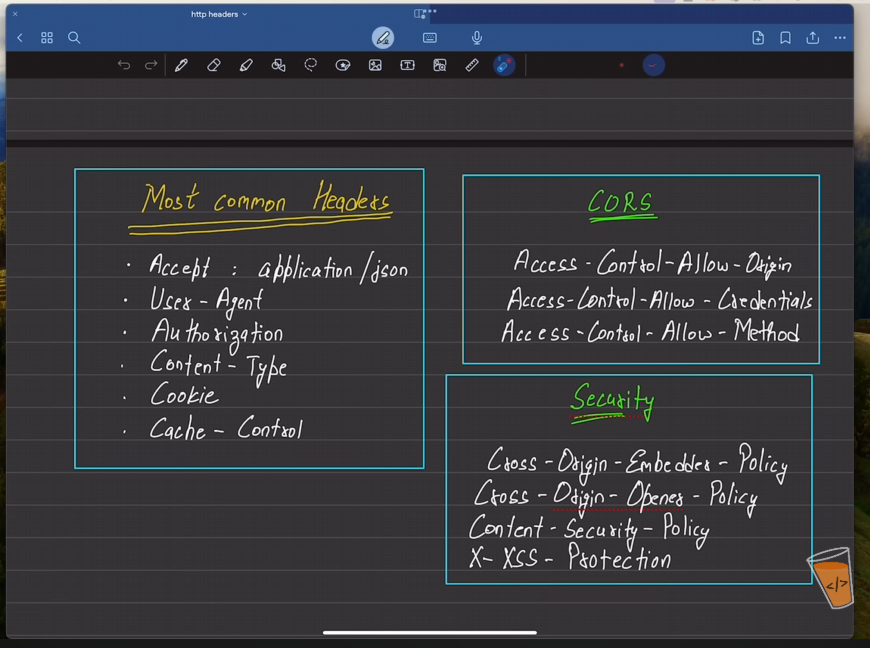 http headers
Most common Headers
· Accept : application/json
· User-Agent
· Authorization
· Content-Type
· Cookie
· Cache-Control
CORS
Access-Control-Allow-Origin
Access-Control-Allow-Credentials
Access-Control-Allow-Method
Security
Cross-Origin-Embedder-Policy
Cross-Origin-Opener-Policy
Content-Security-Policy
X-XSS-Protection
</>